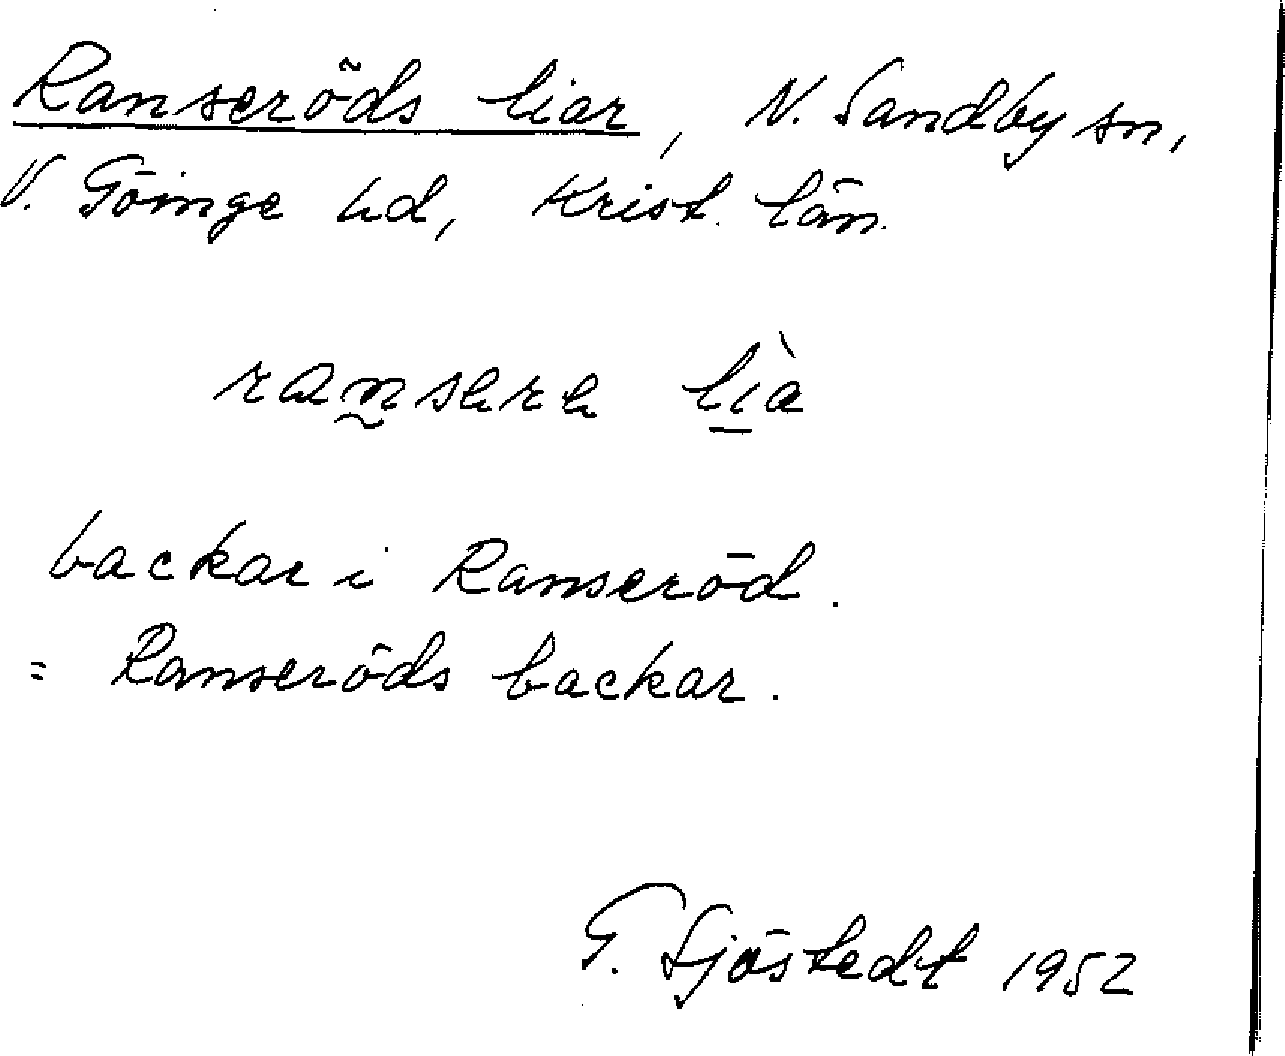 Ranseröds liar, N. Sandby sn,
V. Göinge hd, Krist. län.
backar i Ranseröd.
= Ranseröds backar.
G. Sjöstedt 1952